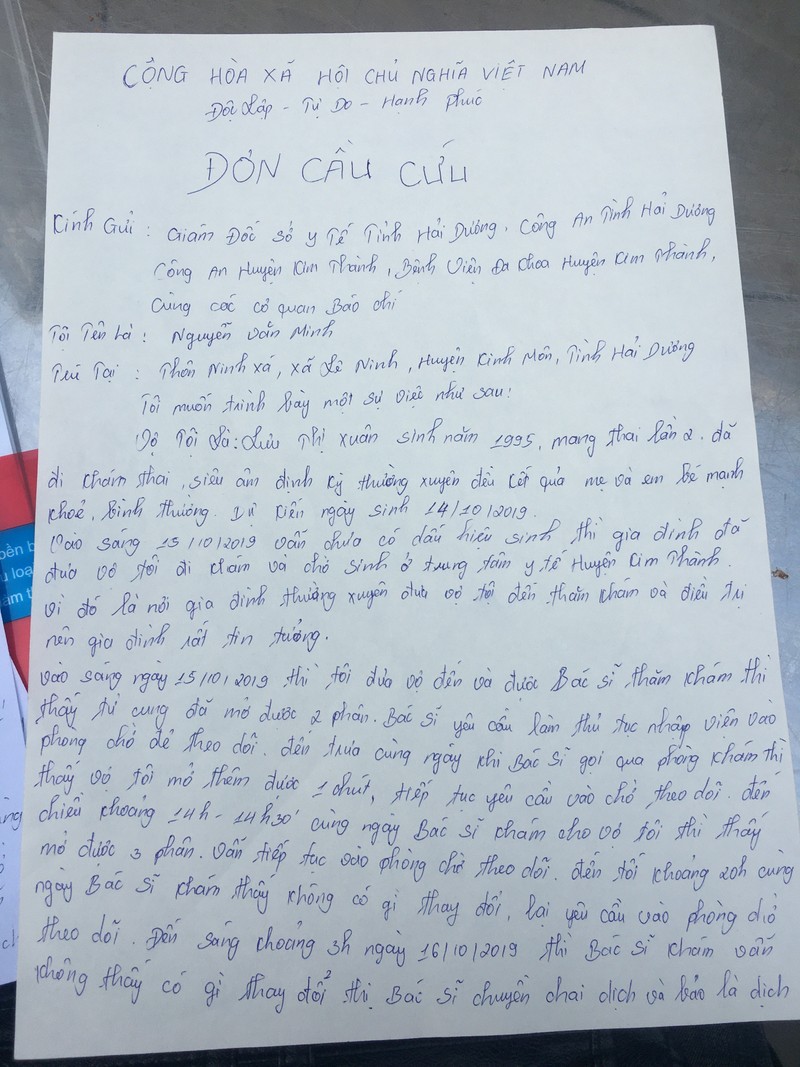 CỘNG HÒA XÃ HỘI CHỦ NGHĨA VIỆT NAM
Độc Lập - Tự Do - Hạnh Phúc
ĐƠN CẦU CỨU
Kính Gửi : Giám Đốc Sở y Tế Tỉnh Hải Dương, Công An Tỉnh Hải Dương
Công An Huyện Kim Thành, Bệnh Viện Đa Khoa Huyện Kim Thành,
Cùng các cơ quan Báo chí
Tôi Tên Là : Nguyễn Văn Minh
Trú Tại : Thôn Ninh Xá, Xã Lê Ninh, Huyện Kinh Môn, Tỉnh Hải Dương
Tôi muốn trình bày một sự việc như sau:
Vợ Tôi Là: Lưu Thị Xuân sinh năm 1995, mang thai lần 2. đã
đi khám thai, siêu âm định kỳ thường xuyên đều kết quả mẹ và em bé mạnh
khoẻ, bình thường. Dự kiến ngày sinh 14/10/2019.
Vào sáng 15/10/2019 vẫn chưa có dấu hiệu sinh thì gia đình đã
đưa vợ tôi đi khám và chờ sinh ở trung tâm y tế Huyện Kim Thành.
vì đó là nơi gia đình thường xuyên đưa vợ tôi đến thăm khám và điều trị
nên gia đình rất tin tưởng.
vào sáng ngày 15/10/2019 thì tôi đưa vợ đến và được Bác sĩ thăm khám thì
thấy tử cung đã mở được 2 phân. Bác sĩ yêu cầu làm thủ tục nhập viện vào
phòng chờ đẻ theo dõi. đến trưa cùng ngày khi Bác sĩ gọi qua phòng khám thì
thấy vợ tôi mở thêm được 1 chút, tiếp tục yêu cầu vào chờ theo dõi. đến
chiều khoảng 14h - 14h30' cùng ngày Bác sĩ khám cho vợ tôi thì thấy
mở được 3 phân. vẫn tiếp tục vào phòng chờ theo dõi. đến tối khoảng 20h cùng
ngày Bác sĩ khám thấy không có gì thay đổi, lại yêu cầu vào phòng chờ
theo dõi. Đến sáng khoảng 3h ngày 16/10/2019 thì Bác sĩ khám vẫn
không thấy có gì thay đổi thì Bác sĩ chuyền chai dịch và bảo là dịch